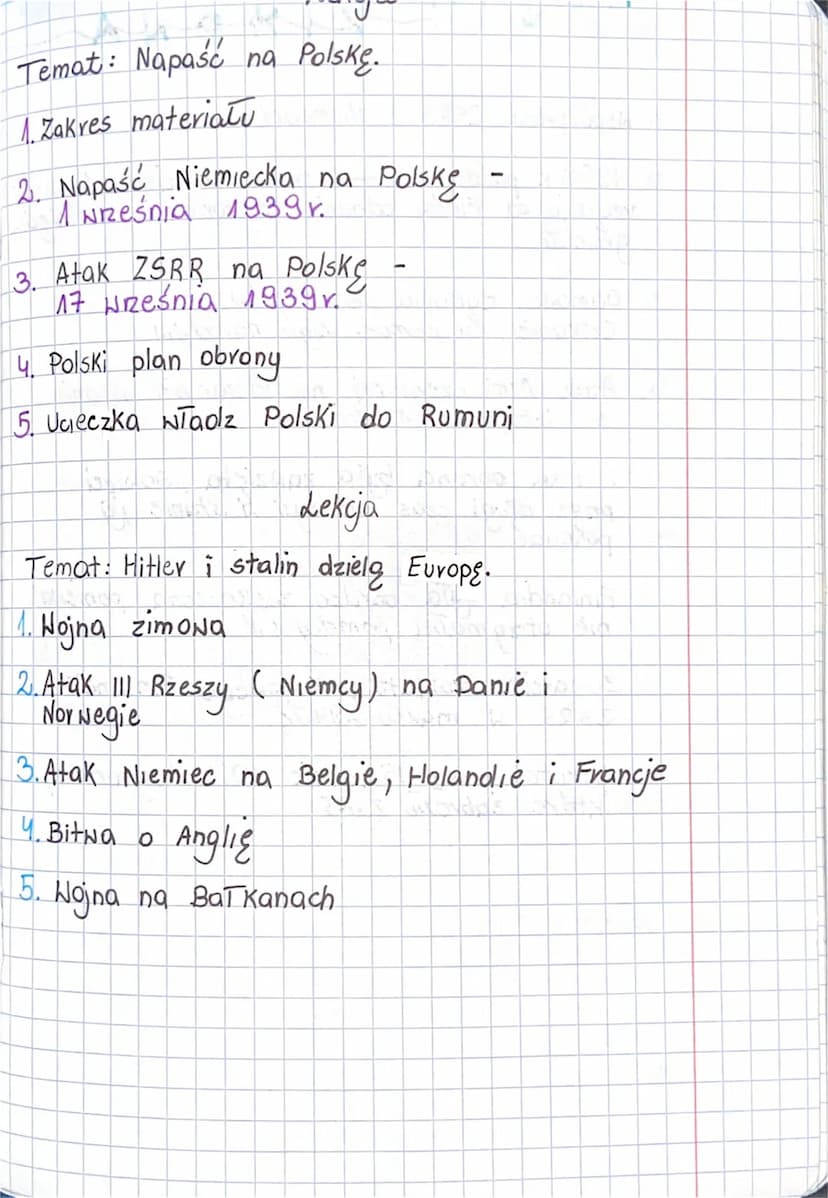 Temat: Napaść na Polskę.
1. Zakres materiału
2. Napaść Niemiecka na Polskę -
1 września 1939r.
3. Atak ZSRR na Polskę -
17 września 1939r.
4. Polski plan obrony
5. Ucieczka władz Polski do Rumuni
Lekcja
Temat: Hitler i stalin dzielą Europę.
1. Wojna zimowa
2. Atak III Rzeszy (Niemcy) na Danię i
Norwegie
3. Atak Niemiec na Belgie, Holandię i Francje
4. Bitwa o Anglię
5. Wojna na Bałkanach